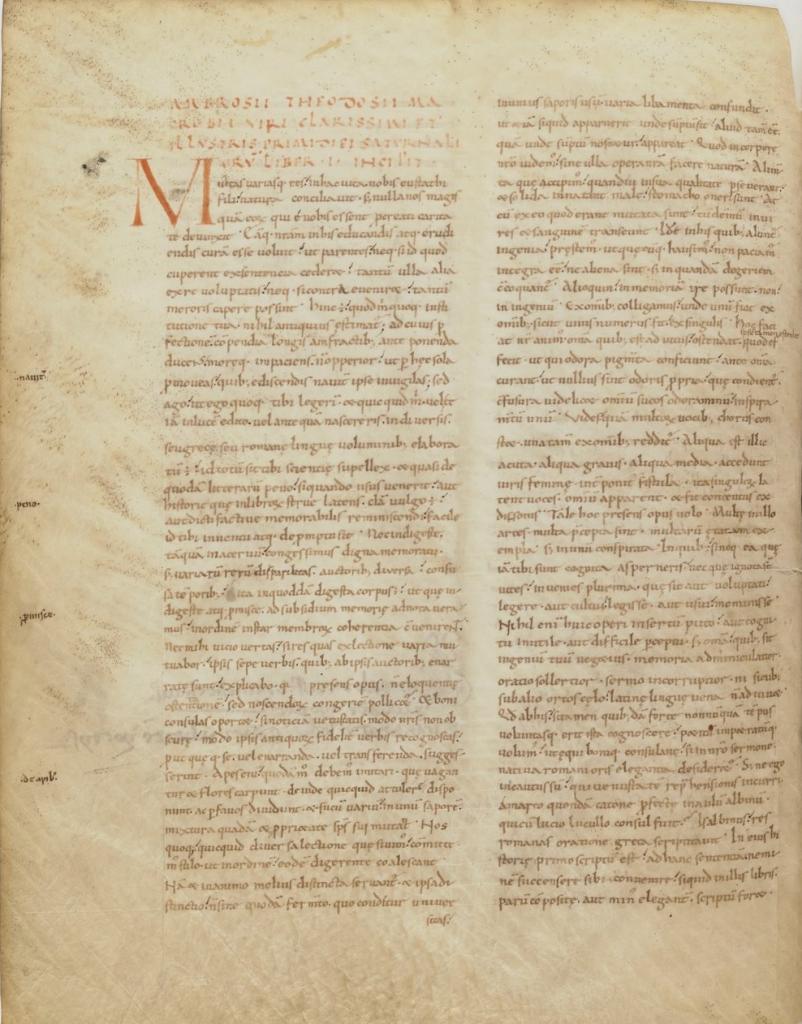 AMBROSII THEODOSII MA
CROBII VIRI CLARISSIMI ET
ILLVSTRIS PRIMI DIEI SATVRNALI
ORV LIBER I INCIPIT
Multas variasq; res inhac uita nobis eustachi
fili natura conciliauit · s; nullanos magis
quã eoꝝ qui é nobis essent pcreati carita
te deuinxit · Eãq; nrãm inhis educandis atq; erudi
endis curã esse uoluit · ut parentes neq; si id quod
cuperent exsententia cederet · tantũ ulla alia
exre uoluptatis neq; sicontra eueniret · tantũ
meroris capere possint · hinc ÷ quod m̃ quoq; insti
tutione tua nihil antiquius estimat̃ · ad cuius p
fectionẽ copendia longis amfractib; ante ponenda
ducens moreq; impaciens nonopperior · ut p hec sola
pmoueas quib; ediscendis nauit̃ ipse inuigilas; sed
ago ut ego quoq; tibi legerĩ · & quicquid m̃ uel te
iã incẽ edito uel ante quã nascereris indiuersis
seu grecę seu romanę linguę voluminib; elabora
tũ ÷ id totũ sit tibi scientię supellex · & quasi de
quodã litterarũ peno siquando usus venerit · aut
historię que inlibroꝝ strue latens clã uulgo ÷
aut dicti factiue memorabilis reminiscendi facile
id tibi inuentu atq; depmptu sit · Nec indigeste
tãquã inaceruũ congessimus digna memoratu ·
s; uariarũ rerũ disparilitas · auctorib; diuersa · confu
sa tẽporib; · ita inquoddã digesta corpus ÷ ut que in
digeste atq; pmisce ad subsidium memorię adnotauera
mus inordinẽ instar membroꝝ coherentia cõuenirent
Nec mihi uicio vertas si res quas ex lectione varia mu
tuabor · ipsis sepe verbis quib; ab ipsis auctorib; enar
ratę sunt explicabo · q presens opus · nõ eloquentię
ostentationẽ · sed noscendoꝝ congerie pollicet̃ · & boni
consulas oportet · sinoticia uetustatis modo nris non ob
scure · modo ipsis antiquoꝝ fidelit̃ verbis recognoscas ·
put queq; se · vel enarranda · vel transferenda · sugges
serint · Apes eni quodã m̃ debem imitari · que uagan
tur & flores carpunt · deinde quicquid attulere dispo
nunt ac p fauos diuidunt · & sucũ variũ inunũ saporẽ
mixtura quadã & pprietate spũs sui mutant · Nos
quoq; quicquid diuersa lectione quesiuim comittem
stilo · ut inordinẽ eodẽ digerente coalescant
Nã & inanimo melius distincta seruant̃ · & ipsa di
stinctio nõ sine quodã fermẽto · quo conditur univer
sitas ·
inunius saporis usũ uaria libamenta confundit ·
ut & iã siquid apparuerit unde suptũ sit aliud tam ẽẽ
quã unde suptũ noscetur appareat · Quod incorpore
nro videm sine ulla opera nra facere naturã · Alim̃
ta que accipim quandiu insua qualitate pseuerant
& solida innatant male stomacho onera sunt · At
cũ ex eo quod erant mutata sunt · tũ demũ inui
res & sanguinẽ transeunt · Idẽ inhis quib; alunt̃
ingenia pstem · ut quecũq; hausim non paciam
integra ee ne aliena sint · s; inquandã digeriẽ
cõcoquant̃ · Alioquin inmemoriã ire possunt non
in ingeniũ · Exomib; colligamus unde unũ fiat ex
omib; sicut unus numerus fit exsingulis · Hoc faci
at nr anim oma quib; est adiutus abscondat · ipsum tantum ostendat quod ef
fecit · ut qui odora pigmta conficiunt · ante oma
curant ut nullius sint odoris ppria que condient̃
cfusura videlicet omiũ sucos odoraminũ inspira
mtũ unũ · Vides quã multoꝝ vocib; chorus con
stet · una tam exomib; reddit̃ · Aliqua est illic
acuta · aliqua grauis · aliqua media · accedunt
uiris feminę int̃ponit̃ fistula · ita singuloꝝ la
tent voces · omiũ apparent · & fit concentus ex
dissonis · Tale hoc presens opus uolo · Multę inillo
artes · multa pcepta sint · multarũ ętatum ex
empla · s; inunũ conspirata · Inquib; sineq; ea que
iã tibi sunt cognita asperneris nec que ignota st̃
uites · inuenies plurima · que sit aut voluptati
legere · aut cultui legisse · aut usui meminisse
Nihil eni huic operi insertũ puto · aut cogni
tu inutile aut difficile pceptu · s; oma quib; sit
ingeniũ tuũ uegetius · memoria adminiculatior
oratio sollertior · sermo incorruptior · ni sicubi
sub alio ortos celo latinę linguę uena nõ adiuuet
Qd abhis si tamen quib;dã forte nonnũquã tẽpus
voluntasq; erit ista cognoscere · petitũ impetratũq;
volum · ut equi boniq; consulant · si innro sermone
natiua romani oris elegantia desideret̃ · S; ne ego
incautus su qui uenustate rephensionis incurri
Amarco quondã catone pfecte inaulũ albinũ ·
qui cũ lucio lucullo consul fuit · Is albinus res
romanas oratione greca scriptitauit · In eius hi
storię primo scriptũ est · ad hanc sententiã nemi
nẽ succensere sibi conuenire · siquid inillis libris
parũ cõposite · aut min elegant̃ · scriptũ foret ·
nauit̃
peno ·
pmisce ·
de apib;